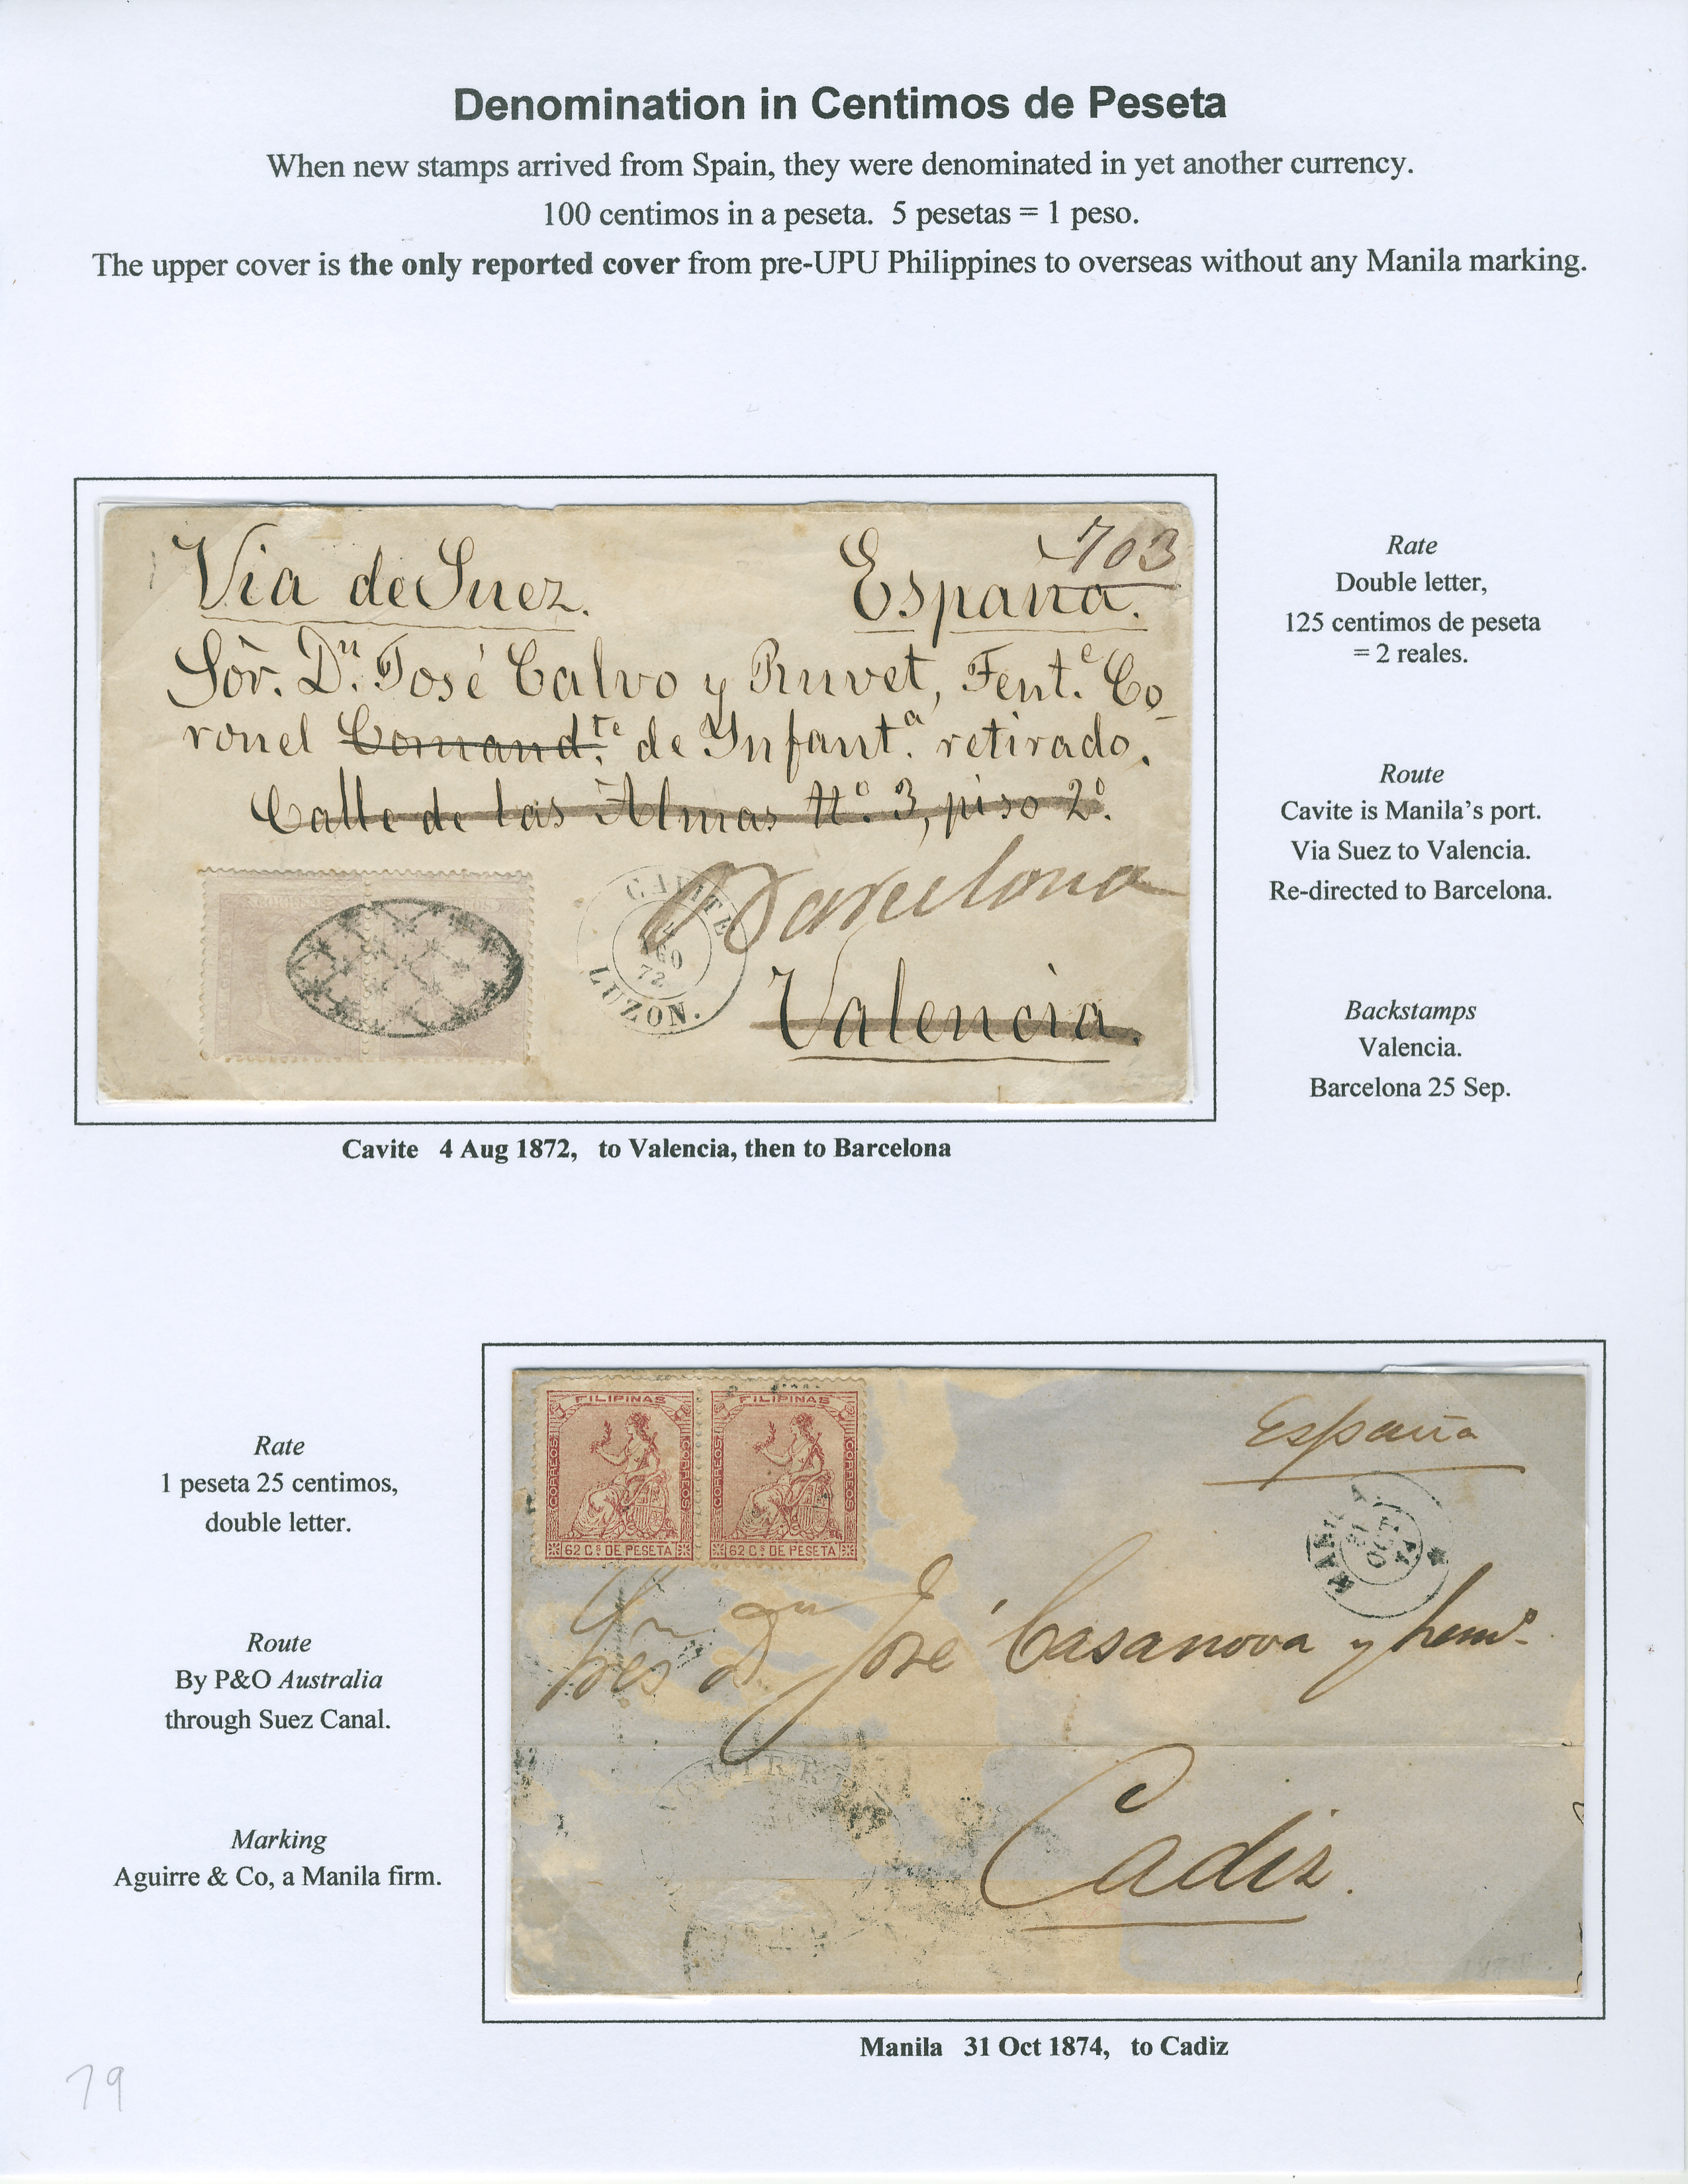 Denomination in Centimos de Peseta
When new stamps arrived from Spain, they were denominated in yet another currency.
100 centimos in a peseta. 5 pesetas = 1 peso.
The upper cover is the only reported cover from pre-UPU Philippines to overseas without any Manila marking.
703
Via de Suez. España.
Sor. Dn. José Calvo y Ruvet, Tent.e Co-
ronel Comand.te de Infant.a retirado.
Calle de las Almas No. 3, piso 2o.
Barcelona
Valencia.
CORREOS
CAVITE
4
AGO
72
LUZON.
Rate
Double letter,
125 centimos de peseta
= 2 reales.
Route
Cavite is Manila's port.
Via Suez to Valencia.
Re-directed to Barcelona.
Backstamps
Valencia.
Barcelona 25 Sep.
Cavite 4 Aug 1872, to Valencia, then to Barcelona
Rate
1 peseta 25 centimos,
double letter.
Route
By P&O Australia
through Suez Canal.
Marking
Aguirre & Co, a Manila firm.
FILIPINAS
CORREOS
CORREOS
62 Cs DE PESETA
FILIPINAS
CORREOS
CORREOS
62 Cs DE PESETA
España
MANILA
31
OCT
74
José Casanova y herms
AGUIRRE
Cadiz.
Manila 31 Oct 1874, to Cadiz
79